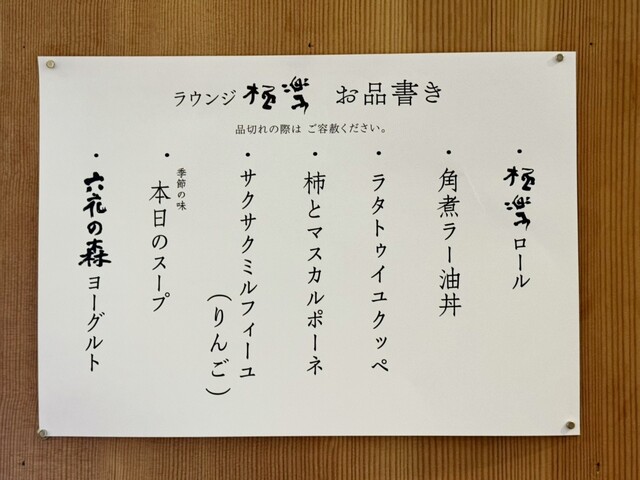 ラウンジ 極楽 お品書き
品切れの際は ご容赦ください。
・極楽ロール
・角煮ラー油丼
・ラタトゥイユクッペ
・柿とマスカルポーネ
・サクサクミルフィーユ
（りんご）
季節の味
・本日のスープ
・六花の森ヨーグルト